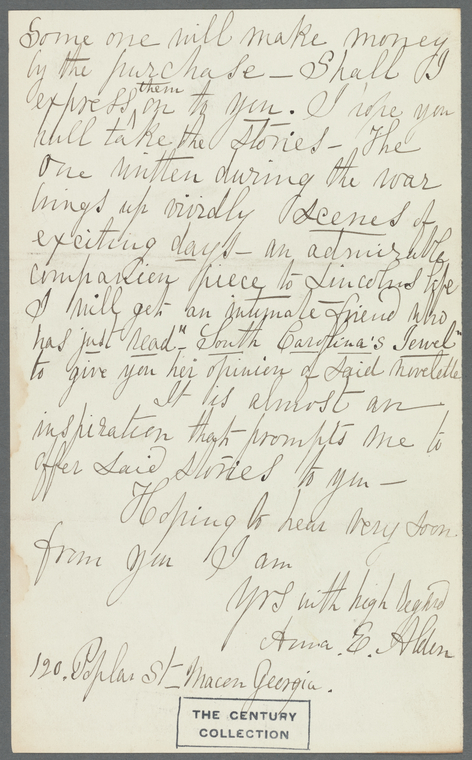 Some one will make money
by the purchase – Shall I
express them on to you. I hope you
will take the stories – The
One written during the war
brings up vividly scenes of
exciting days – an admirable
companion piece to Lincolns life
I will get an intimate friend who
has just read "South Carolina's Jewel"
to give you her opinion of said novelette
It is almost an
inspiration that prompts me to
offer said stories to you –
Hoping to hear very soon
from you I am
Yrs with high regard
Anna. E.
120. Poplar St – Macon Georgia.
THE CENTURY
COLLECTION